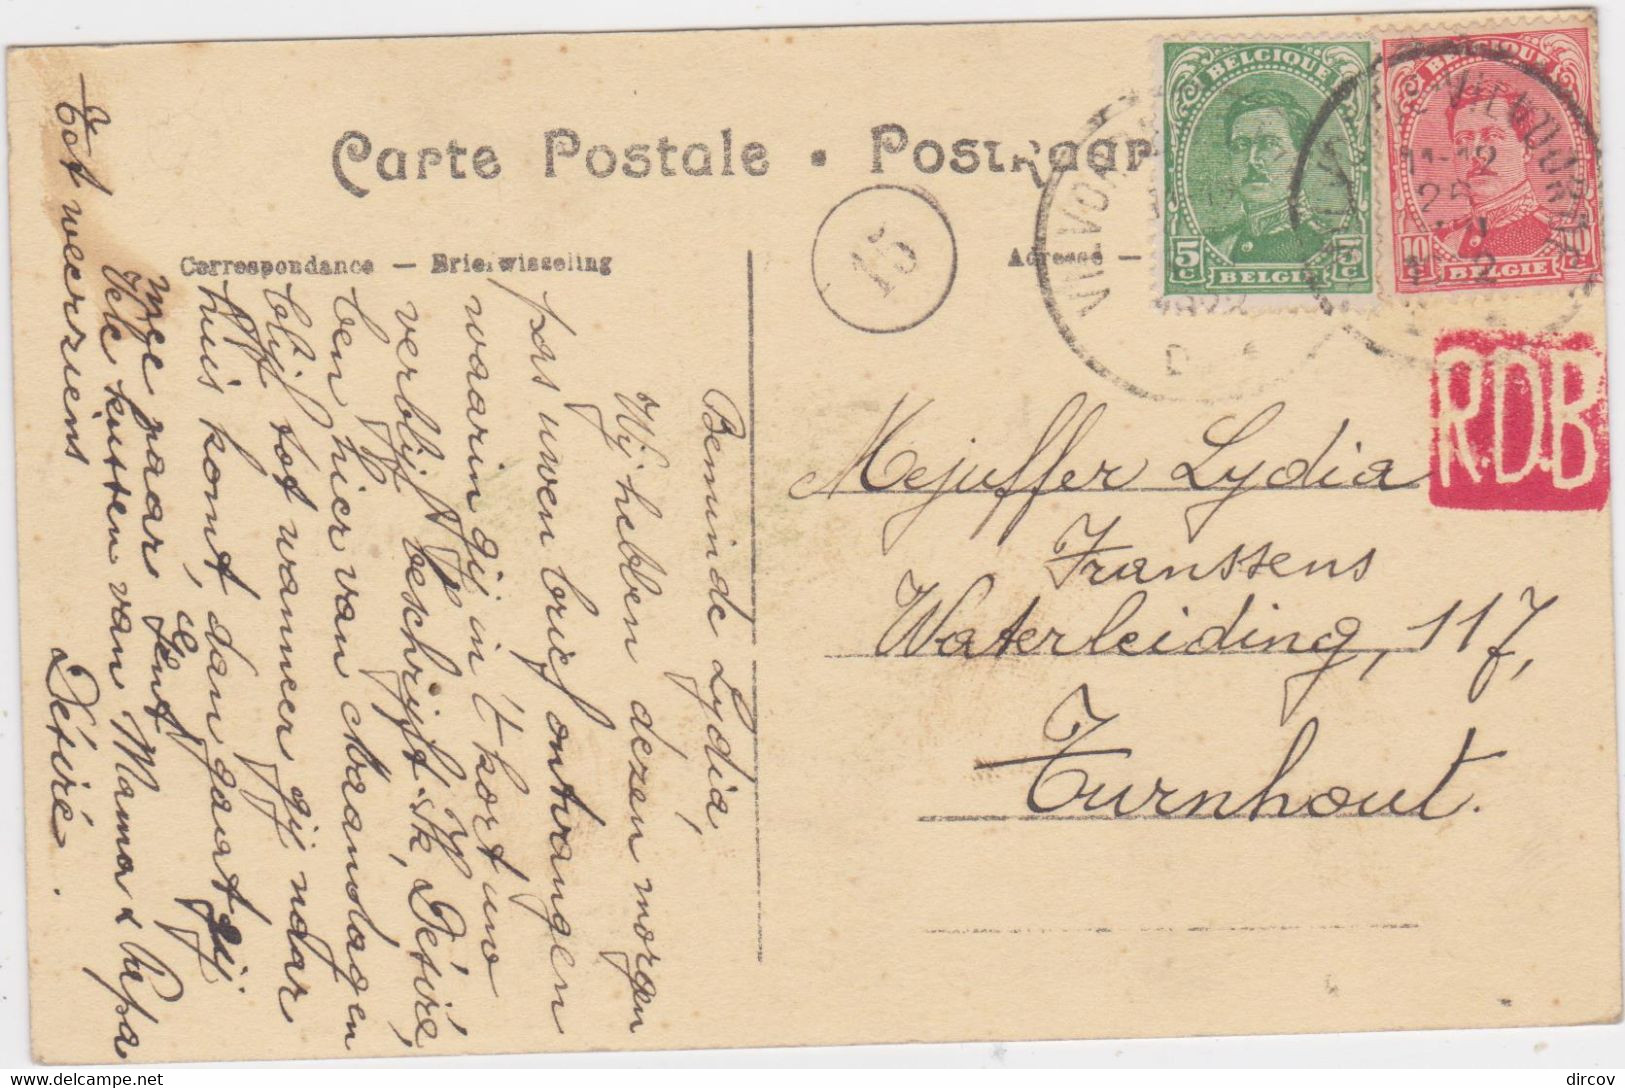 Carte Postale • Postkaar
Correspondance — Briefwisseling
Adresse —
15
BELGIQUE
5c 5c
BELGIË
BELGIQUE
10 10
BELGIE
VILVOR
VILVOORDE
11-12
25
R.D.B
Beminde Lydia,
Wij hebben dezen morgen
pas uwen brief ontvangen
waarin gij in 't kort uw
verblijf beschrijft. Ik, Désiré,
ben hier van maandag en
blijf tot wanneer gij naar
huis komt, dan gaat gij
mee naar Gent,
Vele kussen van Mama & Papa
Tot weerziens
Désiré.
Mejuffer Lydia
Franssens
Waterleiding, 117,
Turnhout.
dircov